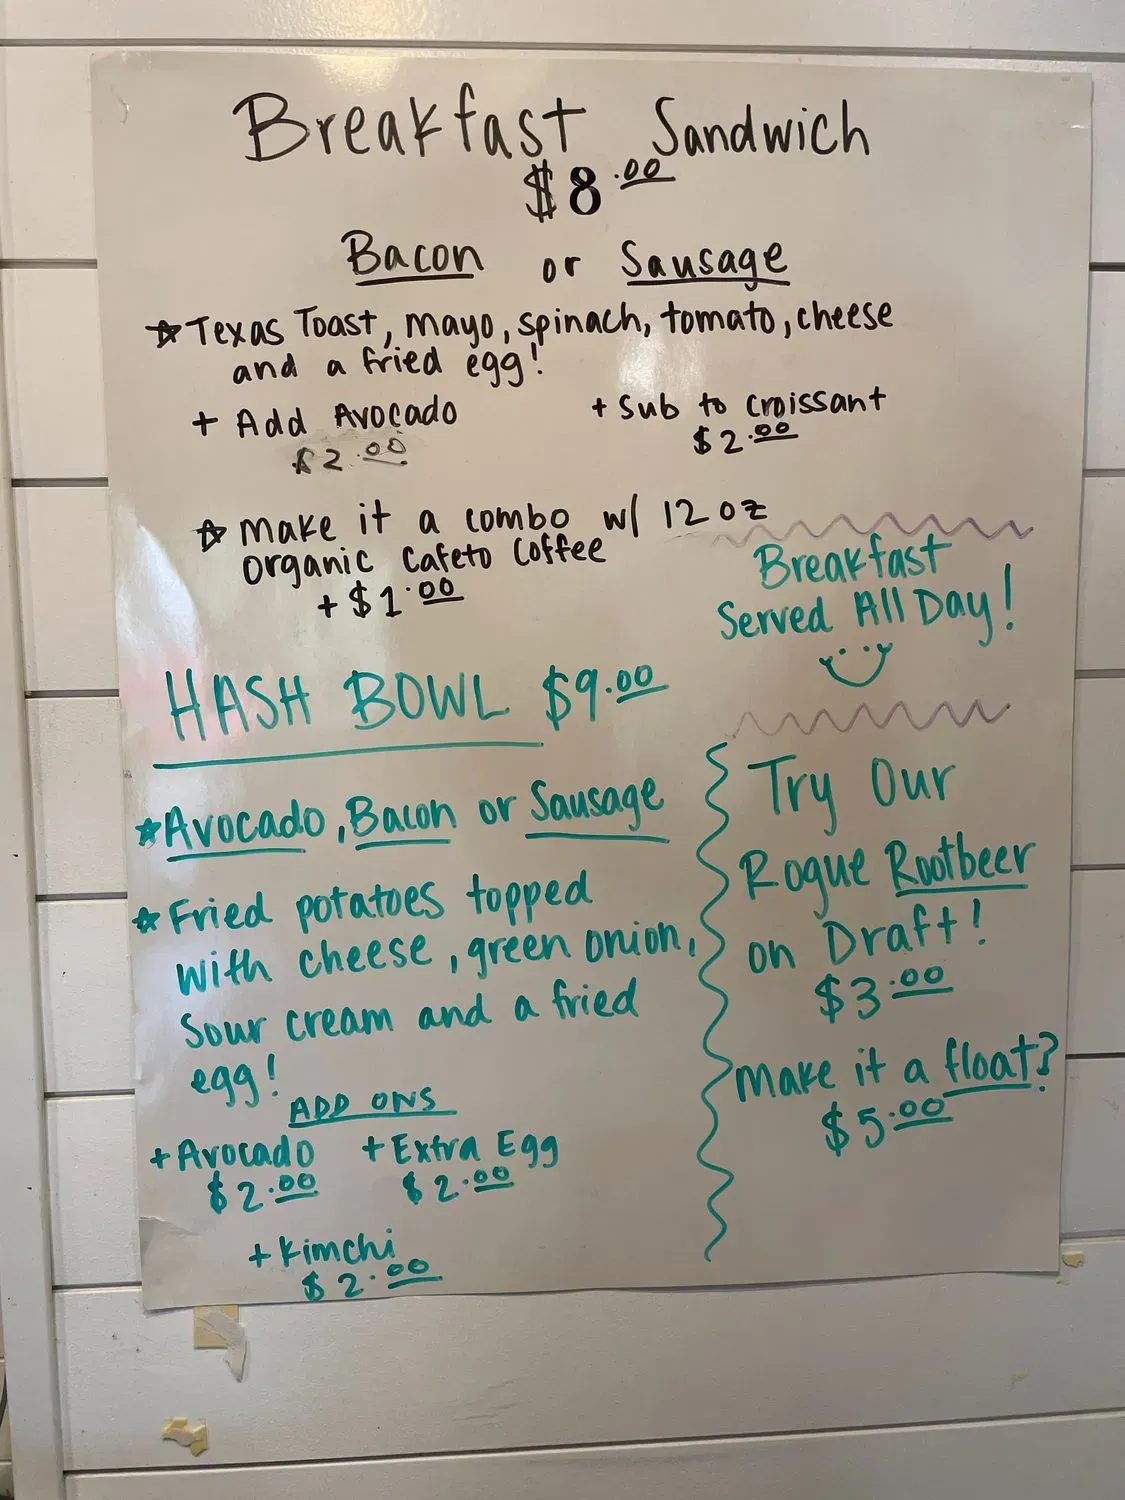 Breakfast Sandwich
$8.00
Bacon or Sausage
☆ Texas Toast, mayo, spinach, tomato, cheese
and a fried egg!
+ Add Avocado
$2.00
+ Sub to Croissant
$2.00
☆ Make it a combo w/ 12 oz
organic Cafeto Coffee
+ $1.00
Breakfast
Served All Day!
HASH BOWL $9.00
☆ Avocado, Bacon or Sausage
☆ Fried potatoes topped
with cheese, green onion,
Sour cream and a fried
egg!
ADD ONS
+ Avocado
$2.00
+ Extra Egg
$2.00
+ Kimchi
$2.00
Try Our
Rogue Rootbeer
on Draft!
$3.00
Make it a float?
$5.00